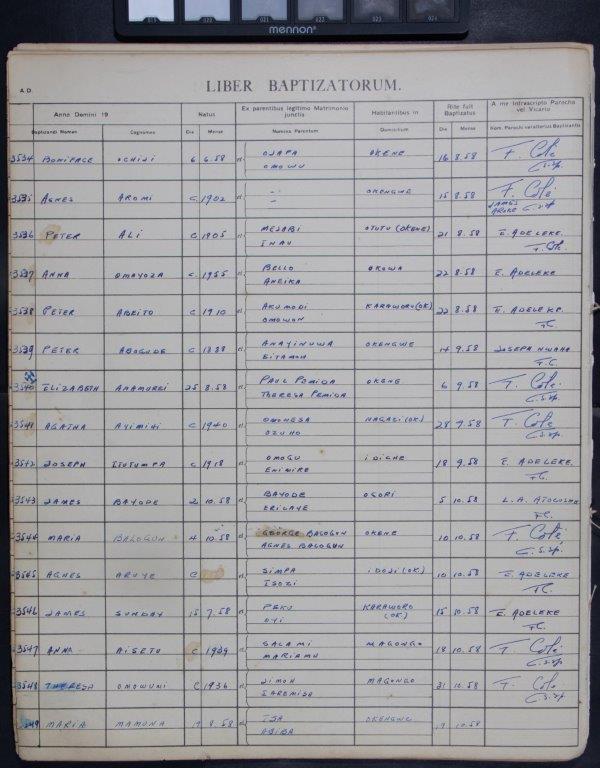 mennon
A.D.
LIBER BAPTIZATORUM.
Anno Domini 19
Natus
Ex parentibus legitimo Matrimonio junctis
Habitantibus in
Rite fuit Baptizatus
A me infrascripto Parocho vel Vicario
Baptizandi Nomen
Cognomen
Die
Mense
Nomina Parentum
Domicilium
Die
Mense
Nom. Parochi vel alterius Baptizantis
3534 BONIFACE OCHIJI 6 6.58 et OJAPA OKENE 16 8.58 F. Coté
OMOWU C.S.Sp.
3535 AGNES AROMI C. 1902 et OKENGWE 15 8.58 F. Coté
JAMES AROKE C.S.Sp
3536 PETER ALI C 1905 et MEJABI OTUTU (OKENE) 21 8.58 E. ADELEKE.
INAU F. Coté
3537 ANNA OMAYOZA C. 1955 et BELLO OKOWA 22 8.58 E. ADELEKE
ANEIKA
3538 PETER ABEITO C 1910 et AKUMODI KARAWORO (OK) 22 8.58 E. ADELEKE.
OMOWON F.C.
3539 PETER ABOGUDE C 1888 et ANAYINUWA OKENGWE 14 9.58 JOSEPH NWAHO
EITAMOH F.C.
3540 ELIZABETH ANAMUREI 25 8.58 et PAUL PEMIDA OKENE 6 9.58 F. Coté
THERESA PEMIDA C.S.Sp.
3541 AGATHA AYIMIHI C 1940 et OMONESA NAGAZI (OK.) 28 9.58 F. Coté
OZUHO C.S.Sp.
3542 JOSEPH C 1918 et OMOGU IDICHE 18 9.58 E. ADELEKE.
ENIWIRE F.C.
3543 JAMES BAYODE 2 10.58 et BAYODE OGORI 5 10.58 L. A.
ERICAYE F.C.
3544 MARIA BALOGUN 4 10.58 et GEORGE BALOGUN OKENE 10 10.58 F. Coté
AGNES BALOGUN C.S.Sp.
3545 AGNES ARUYE C et SIMPA IDOJI (OK.) 10 10.58 E. ADELEKE
ISOZI F.C.
3546 JAMES SUNDAY 15 7.58 et PEKU KARAWORO (OK.) 15 10.58 E. ADELEKE
OYI F.C.
3547 ANNA AISETU C 1939 et SALAMI MAGONGO 18 10.58 F. Coté
MARIAMU C.S.Sp.
3548 THERESA OMOWUMI C 1936 et JIMOH MAGONGO 31 10.58 F. Coté
C.S.Sp.
3549 MARIA MAMUNA 17 8.58 et ISA OKENGWE 17 10.58
ABIBA